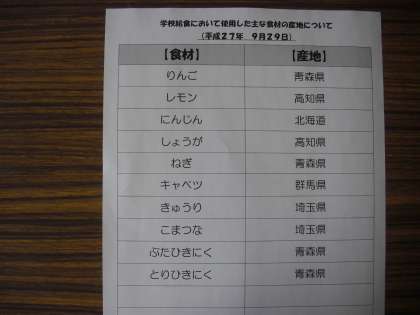 学校給食において使用した主な食材の産地について
（平成27年　9月29日）
【食材】　【産地】
りんご　青森県
レモン　高知県
にんじん　北海道
しょうが　高知県
ねぎ　青森県
キャベツ　群馬県
きゅうり　埼玉県
こまつな　埼玉県
ぶたひきにく　青森県
とりひきにく　青森県